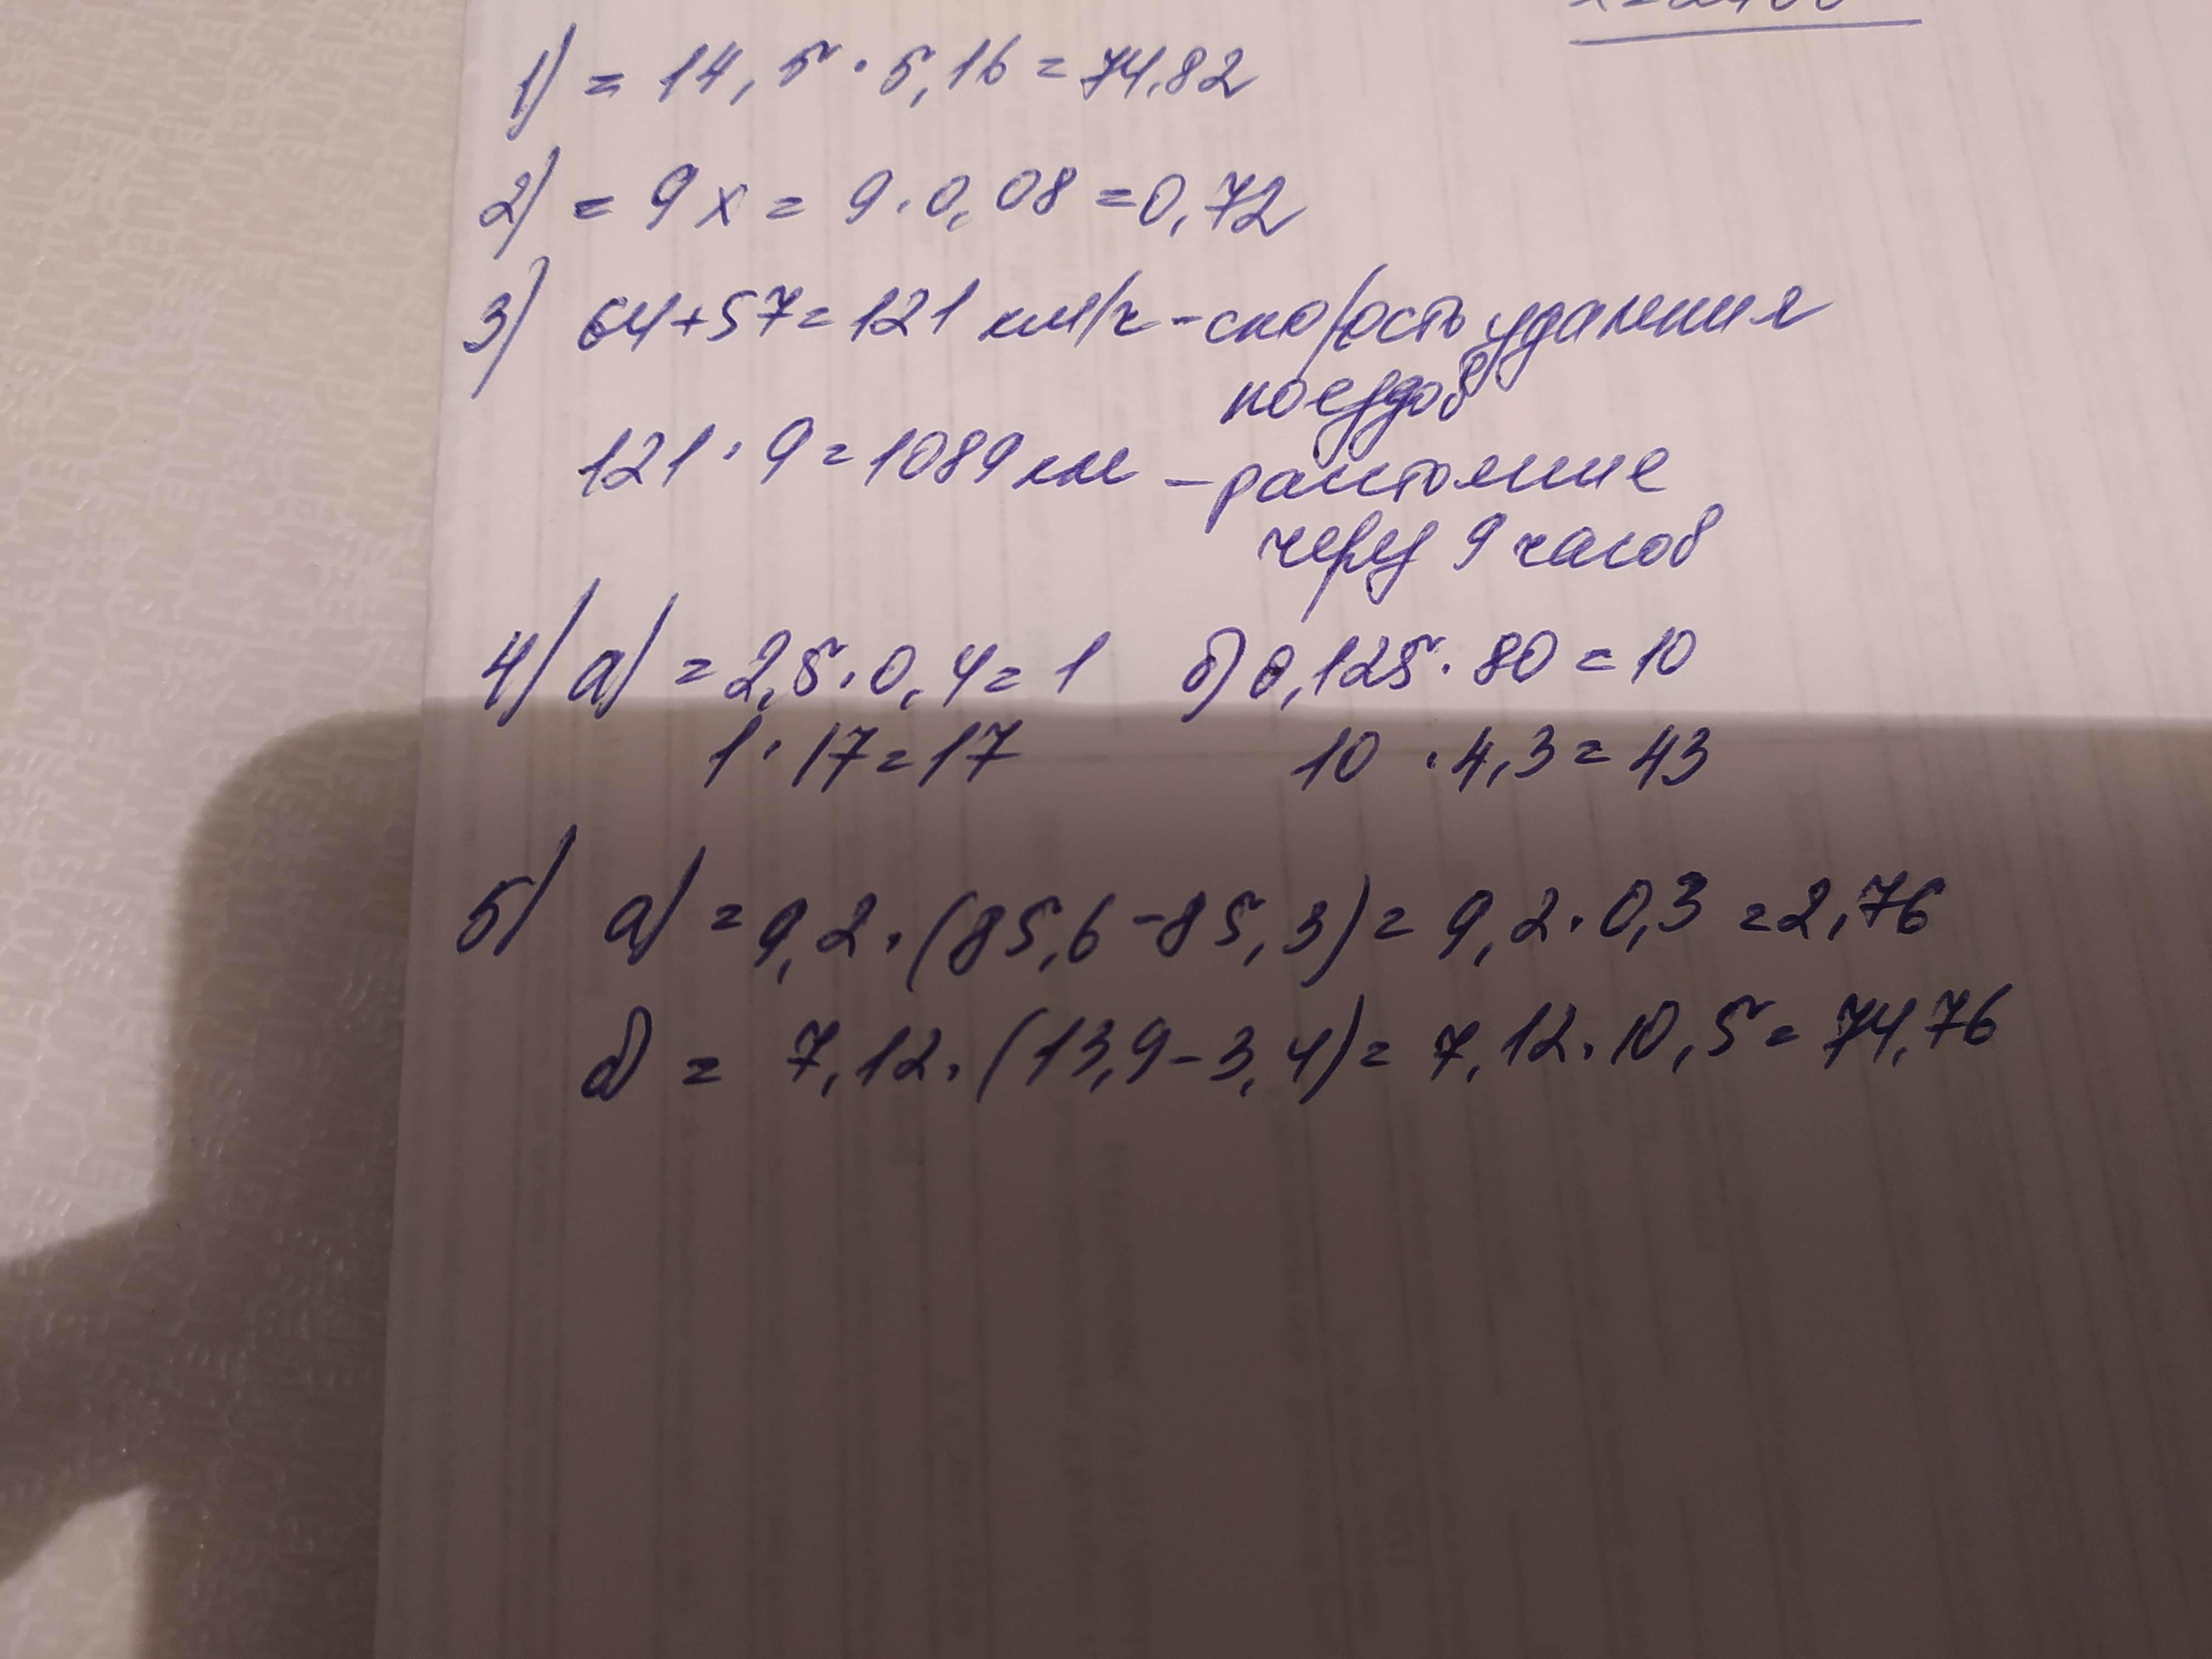 1) = 14,5 · 5,16 = 74,82
2) = 9x = 9 · 0,08 = 0,72
3) 64+57=121 км/ч - скорость удаления
поездов
121 · 9 = 1089 км - расстояние
через 9 часов
4) а) = 2,5 · 0,4 = 1 б) 0,125 · 80 = 10
1 · 17 = 17 10 · 4,3 = 43
5) а) = 9,2 · (85,6 - 85,3) = 9,2 · 0,3 = 2,76
б) = 7,12 · (13,9 - 3,4) = 7,12 · 10,5 = 74,76